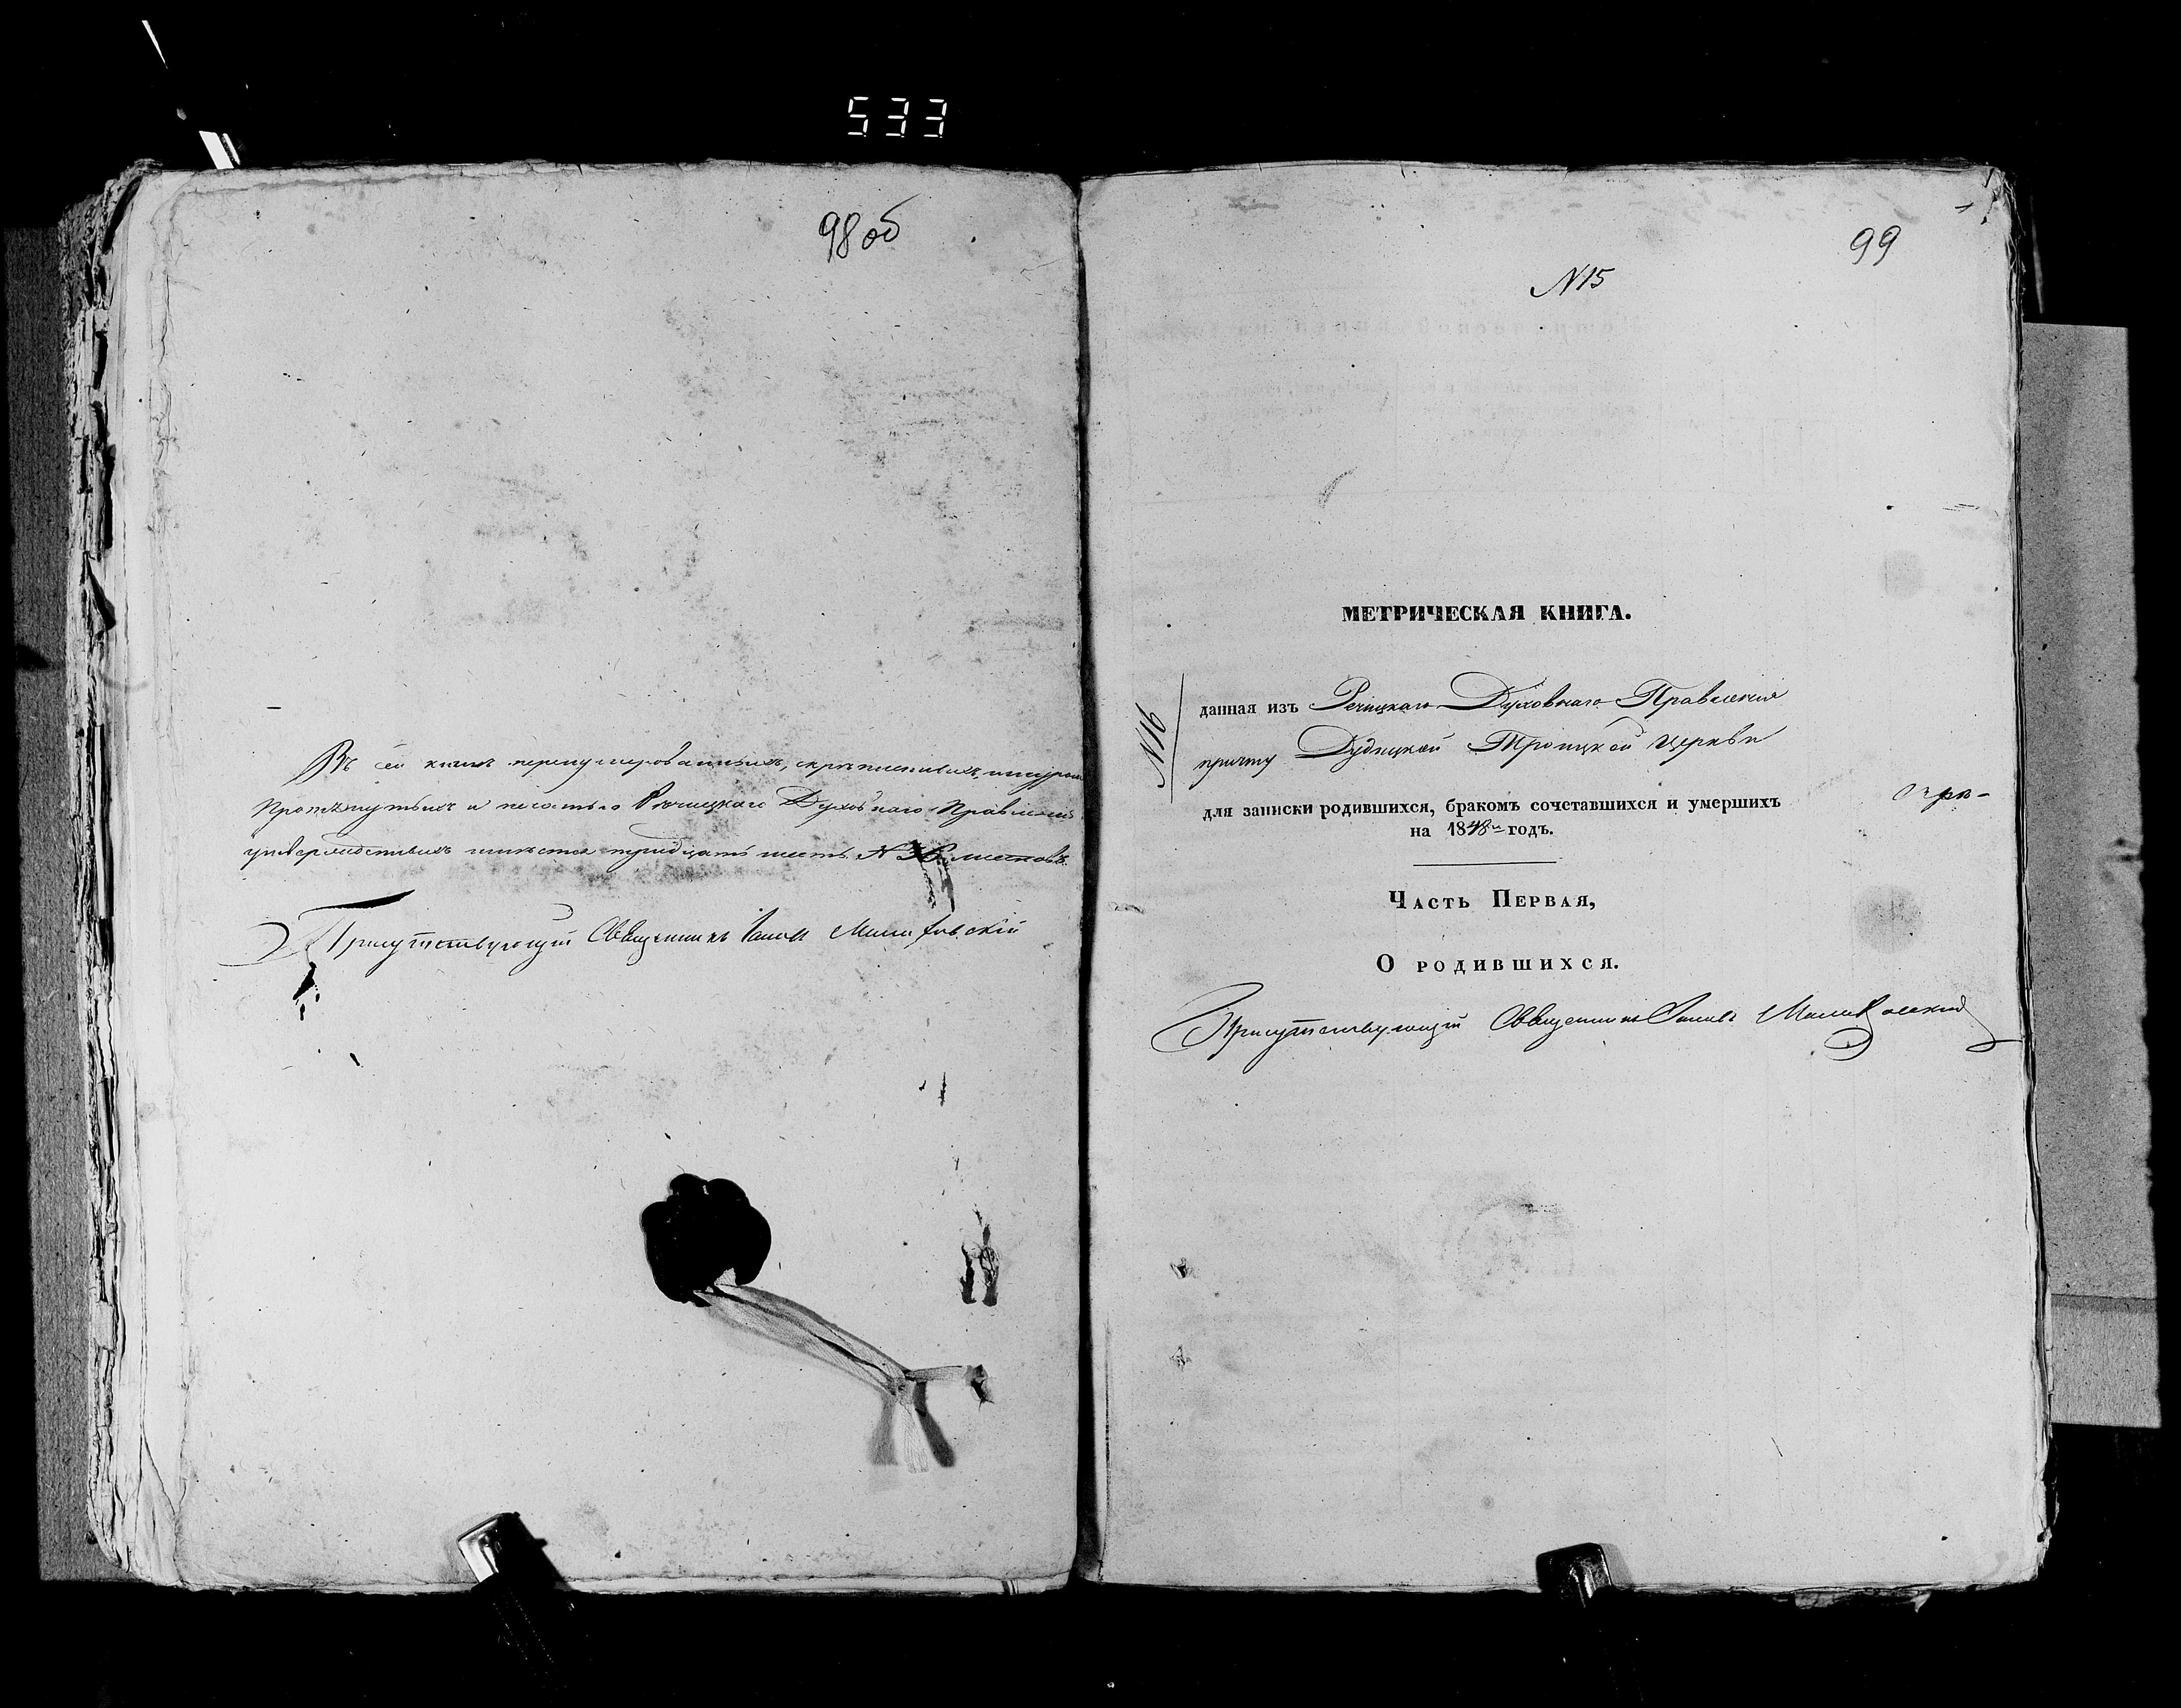 533
98 об
Въ сей книгѣ перенумерованныхъ, скрѣпленныхъ, шнуромъ
протянутыхъ и печатью Рѣчицкаго Духовнаго Правленія
утвержденныхъ имѣется тридцать шесть № 36 листовъ.
Присутствующій Священникъ
99
N 15
МЕТРИЧЕСКАЯ КНИГА.
N 16
данная изъ Речицкаго Духовнаго Правленія
причту Дудицкой Троицкой церкви
для записки родившихся, бракомъ сочетавшихся и умершихъ
на 1848й годъ.
ЧАСТЬ ПЕРВАЯ,
О РОДИВШИХСЯ.
Присутствующій Священникъ